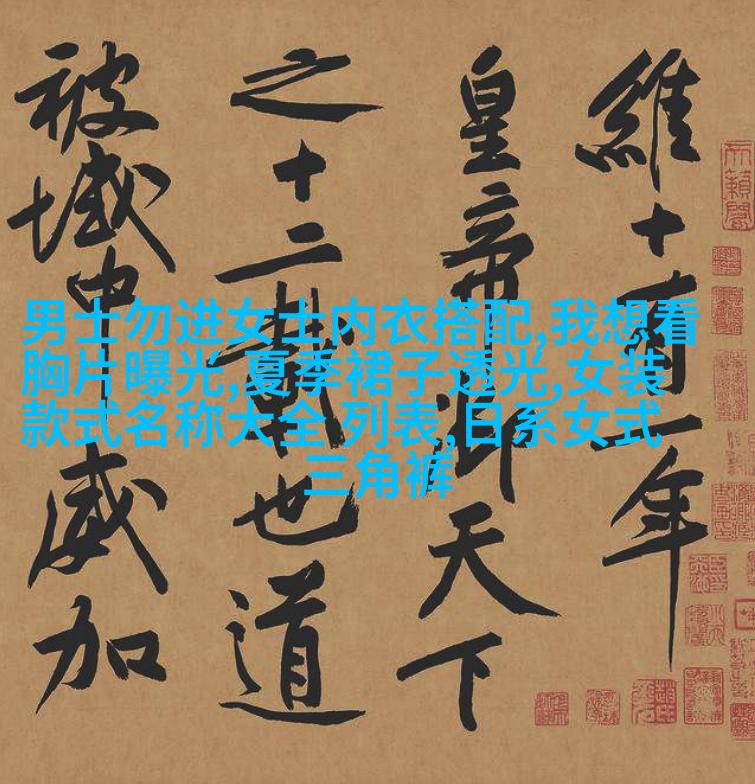 維十有一年
皇帝御天下
之十二載也道
被域中威加
男士勿进女士内衣搭配,我想看
胸片曝光,夏季裙子透光,女装
款式名称大全 列表,日系女式
三角裤